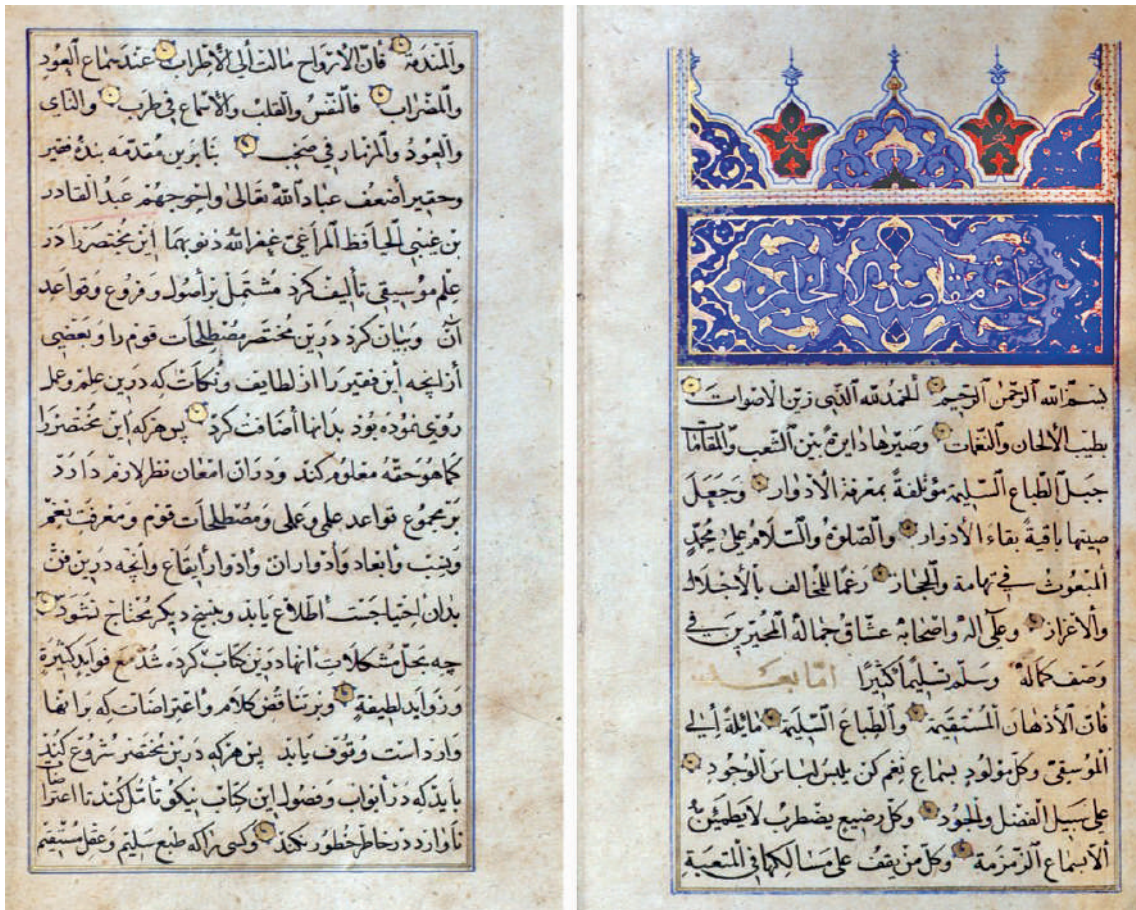 كتاب مقاصد الالحان
بسم الله الرحمن الرحيم الحمد لله الذي زين الاصوات
بطيب الألحان والنغمات وصيرها دايرة بين الشعب والمقامات
جبل الطباع السليمة مؤتلفةً بمعرفة الأدوار وجعل
صيتها باقيةً بقاء الأدوار والصلوة والسلام على محمدٍ
المبعوث في تهامة والحجاز رغما للمخالف بالاجلال
والأعزاز وعلى اله واصحابه عشاق جماله المخبرين في
وصف كماله وسلم تسليماً كثيرًا امّا بعد
فان الأذهان المستقيمة والطباع السليمة مائلة إلى
الموسقى وكل مولودٍ بسماع نغم كن يلبس لباس الوجود
على سبيل الفضل والجود وكل رضيع يضطرب لا يطمئن
الا بسماع الزمزمة وكل من يقف على مسالكها في المتعبة
والمندمة فان الأرواح مالت إلى الأطراب عند سماع العود
والمضراب فالنفس والقلب والأسماع في طرب والناى
والعود والمزمار في صخب بنابرين مقدمه بنده فقير
وحقير أضعف عباد الله تعالى واحوجهم عبد القادر
بن غيبي الحافظ المراغي غفر الله ذنوبهما اين مختصر را در
علم موسيقى تأليف كرد مشتمل بر أصول وفروع وقواعد
آن وبيان كرد درين مختصر مصطلحات قوم را وبعضى
از انچه اين فقير را از لطايف ونكات كه درين علم وعمل
روى نموده بود بدانها اضافت كرد پس هركه اين مختصر را
كما هو حقه معلوم كند ودران امعان نظر لازم دارد
بر مجموع قواعد علمى وعملى ومصطلحات قوم ومعرفت نغم
ونسب وابعاد وأدوار ان وادوار أيقاع وانچه درين فن
بدان احتياجست اطلاع يابد وبنسخ ديكر محتاج نشود
چه بحل مشكلات انها درين كتاب كرده شد مع فوايد كثيرةٍ
وزوايد لطيفةٍ وبر تناقض كلام واعتراضات كه بر انها
وارد است وقوف يابد پس هركه درين مختصر شروع كند
بايد كه در أبواب وفصول اين كتاب نيكو تأمل كند تا اعتراضات
نا وارد در خاطر خطور نكند وكسى را كه طبع سليم وعقل مستقيم